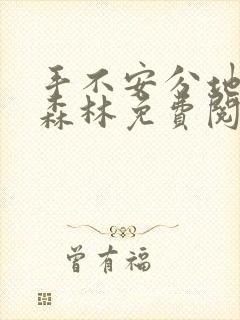 手不安分地
森林免费阅
曾有福